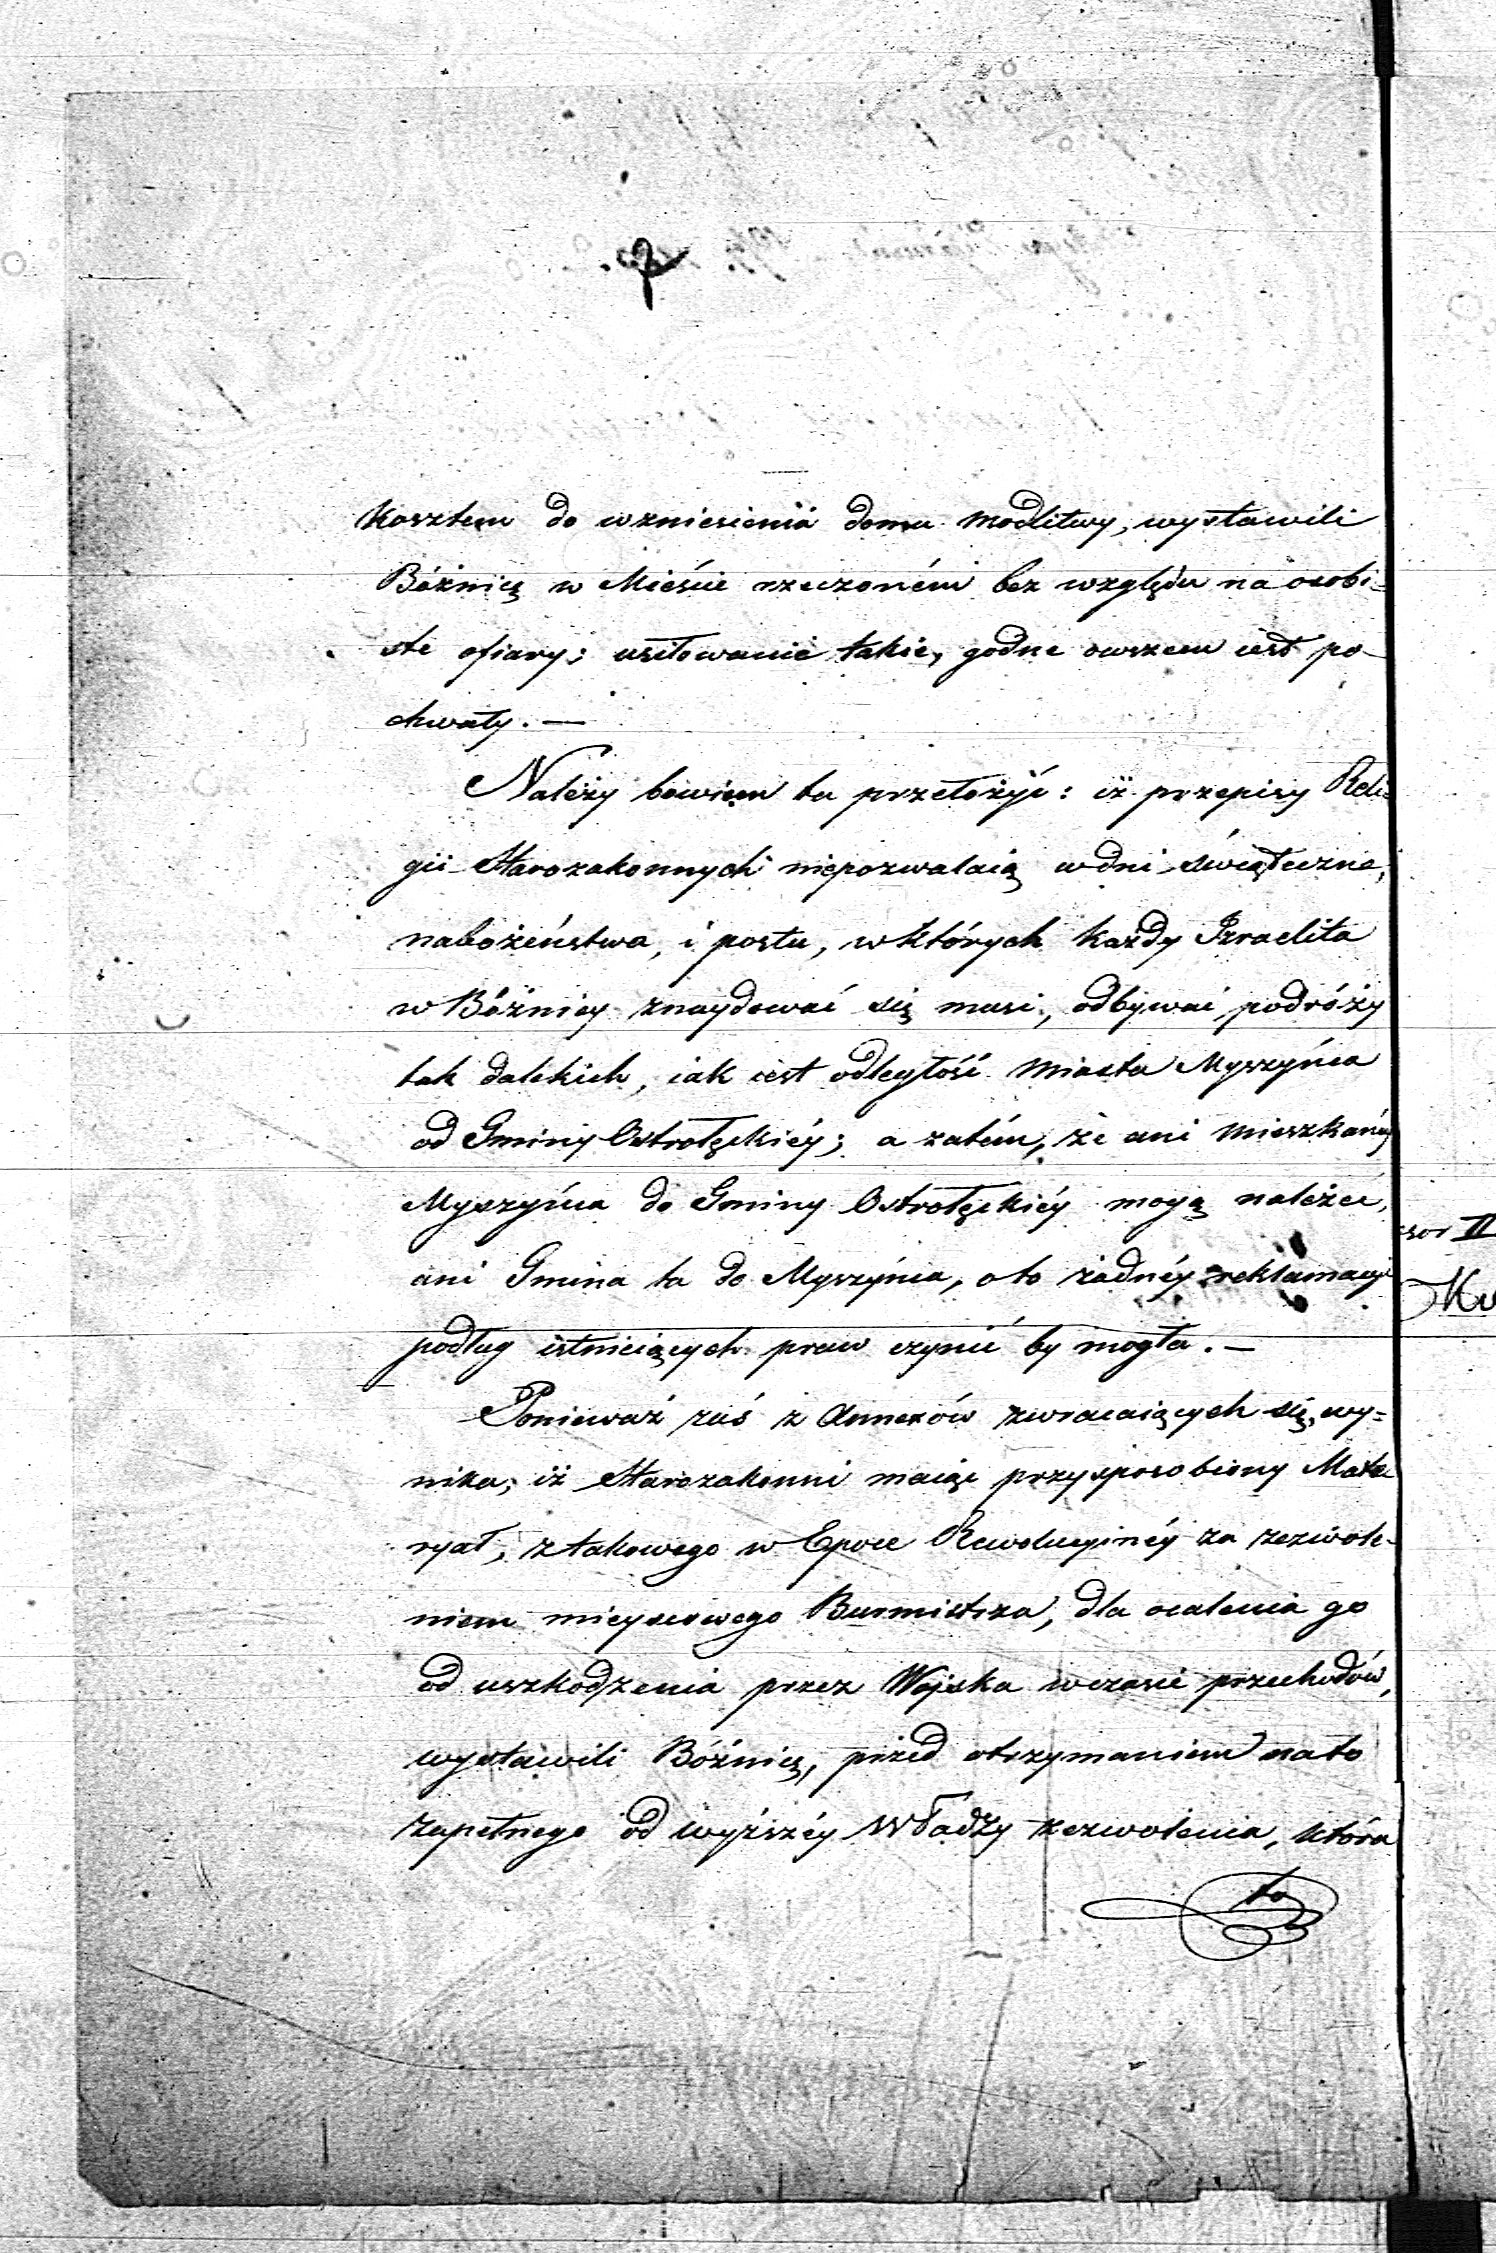 kosztem do wzniesienia domu modlitwy, wystawili
Bóżnicę w Mieście rzeczoném bez względu na osobi=
ste ofiary; usiłowanie takie, godne owszem iest po-
chwały. —
Należy bowiem tu przełożyć: iż przepisy Reli=
gii Starozakonnych niepozwalaią w dni świąteczne,
nabożeństwa, i postu, w których każdy Izraelita
w Bóżnicy znaydować się musi, odbywać podróży
tak dalekich, iak iest odległość miasta Myszyńca
od Gminy Ostrołęckiéy; a zatém, że ani mieszkańcy
Myszyńca do Gminy Ostrołęckiéy mogą należeć,
ani Gmina ta do Myszyńca, o to żadnéy reklamacyi
podług istnieiących praw czynić by mogła. —
Ponieważ zaś z Annexów zwracaiących się, wy=
nika; iż Starozakonni maiąc przysposobiony Mate-
ryał, z takowego w Epoce Rewolucyinéy za zezwole-
niem mieyscowego Burmistrza, dla ocalenia go
od uszkodzenia przez Wojska w czasie przechodów,
wystawili Bóżnicę, przed otrzymaniem na to
zupełnego od wyższéy Władzy zezwolenia, która
to
sor II